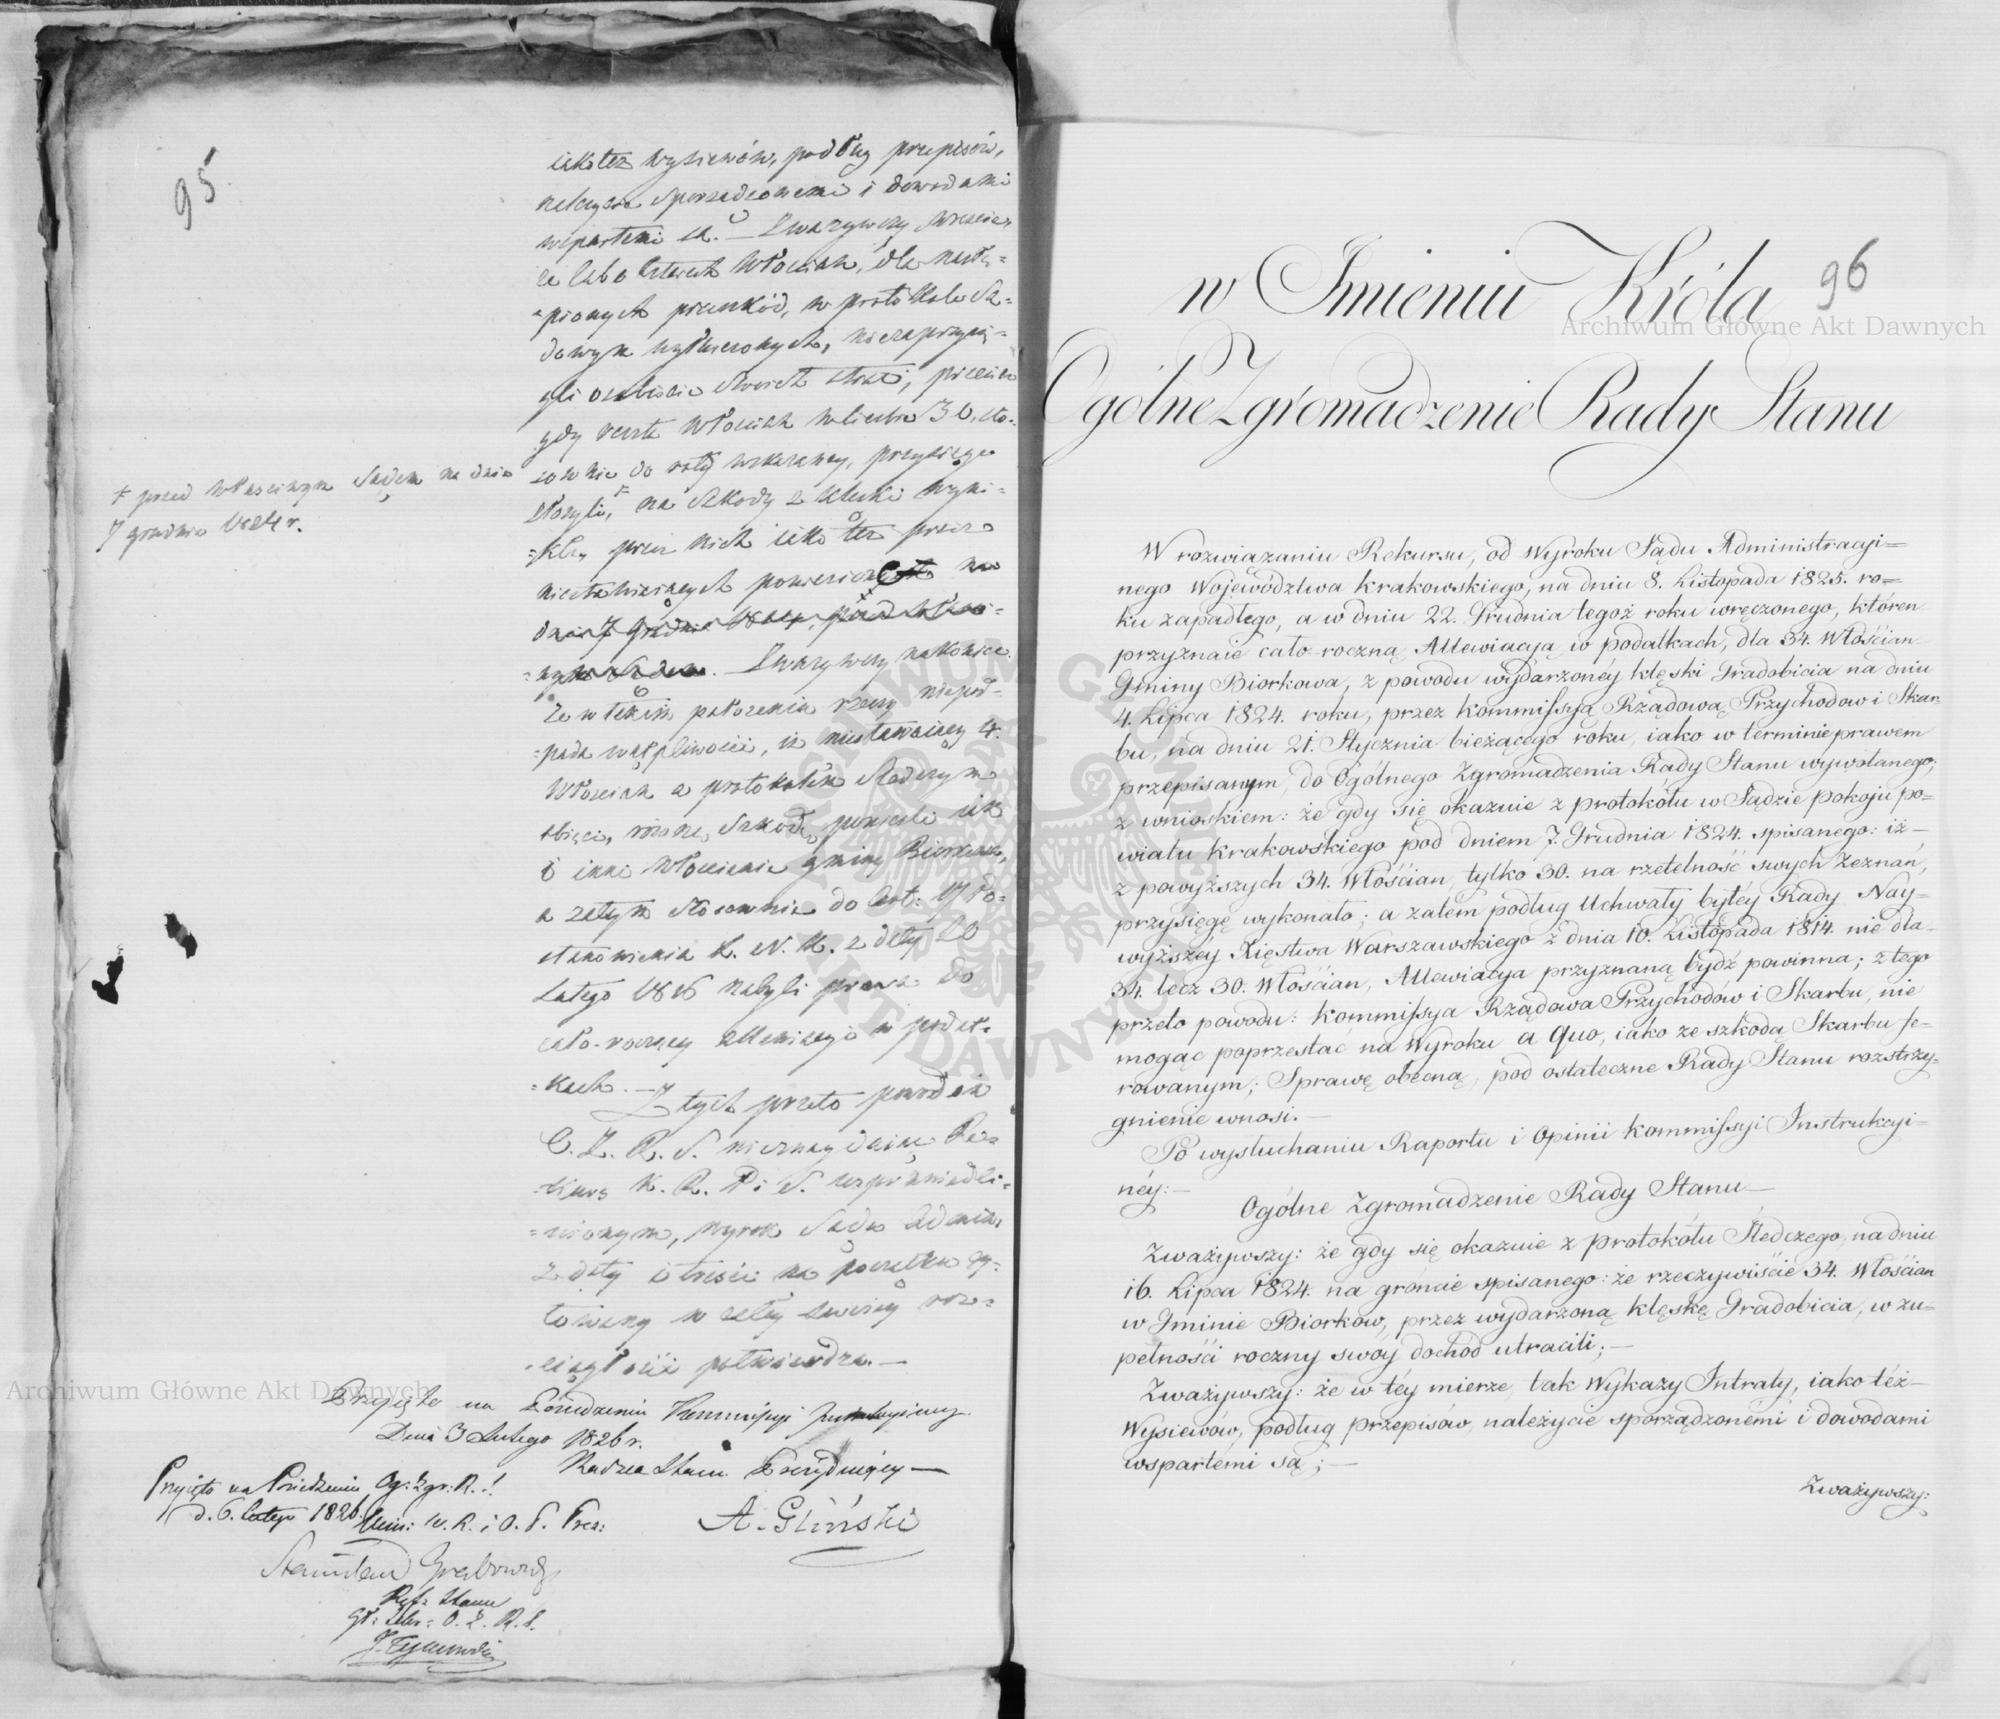 95
iako też wysiewów, podług przepisów,
należycie sporządzonemi i dowodami
wspartemi są. — Zważywszy wreszcie,
że lubo czterech Włościan, dla nastą-
-pionych przeszkód, w protokole Są-
dowym wytkniętych, niezaprzysię-
gli osobiście swoich strat, przecież
gdy reszta Włościan w liczbie 30, sto-
sownie do roty wskazaney, przysięgę
złożyli, ⌿ na szkody z klęski wyni-
-kłe, przez nich iako też przez
niestawaiących poniesione na
dniu 7 Grudnia 1824, przed właści-
-wym Sądem. Zważywszy nakoniec
że w takim położeniu rzeczy niepod-
-pada wątpliwości, iż niestawaiący 4.
Włościan a protokółem śledczym
obięci, równe szkody ponieśli iak
i inni Włościanie gminy Biorkowa,
a zatym stosownie do Art: 17 Po-
stanowienia X. N. K. z daty 20
Lutego 1816 nabyli prawa do
cało-roczney allewiacyi w podat-
-kach. — Z tych przeto powodów
O. Z. R. S. nieznayduiąc Re-
-kurs K. R. P. i S. usprawiedli-
-wionym, wyrok Sądu Admin.
z daty i treści na początku cy-
towany w całey swoiey roz-
-ciągłości potwierdza. —
⌿ przed właściwym Sądem na dniu
7 grudnia 1824 r.
Przyięto na Posiedzeniu Kommissyi Instrukcyiney
Dnia 3 Lutego 1826 r.
Radzca Stanu Prezyduiący —
A. Gliński
Przyięto na Posiedzeniu Og: Zgr: R. S.
d. 6. Lutego 1826.
Min: W. R. i O. P. Prez:
Stanisław Grabowski
Ref: Stanu
O. Z. R. S.
J. Tymowski
96
w Imieniu Króla
Ogólne Zgromadzenie Rady Stanu
W rozwiązaniu Rekursu, od Wyroku Sądu Administracyi=
nego Województwa Krakowskiego, na dniu 8. Listopada 1825. ro=
ku zapadłego, a w dniu 22. Grudnia tegoż roku wręczonego, któren
przyznaie cało-roczną Allewiacyą w podatkach, dla 34. Włościan
Gminy Biorkowa, z powodu wydarzonéy klęski Gradobicia na dniu
4. Lipca 1824. roku, przez Kommissyą Rządową Przychodow i Skar=
bu, na dniu 21. Stycznia bieżącego roku, iako w terminie prawem
przepisanym, do Ogólnego Zgromadzenia Rady Stanu wywołanego;
z wnioskiem: że gdy się okazuie z protokółu w Sądzie pokoju po=
wiatu Krakowskiego pod dniem 7. Grudnia 1824. spisanego: iż —
z powyższych 34. Włościan, tylko 30. na rzetelność swych zeznań,
przysięgę wykonało; a zatem podług Uchwały byłey Rady Nay-
wyższéy Xięstwa Warszawskiego z dnia 10. Listopada 1814. nie dla
34. lecz 30. Włościan, Allewiacya przyznaną bydź powinna; z tego
przeto powodu: Kommissya Rządowa Przychodów i Skarbu, nie
mogąc poprzestać na Wyroku a quo, iako ze szkodą Skarbu fe-
rowanym; Sprawę obecną, pod ostateczne Rady Stanu rozstrzy-
gnienie wnosi. —
Po wysłuchaniu Raportu i Opinii Kommissyi Instrukcyi-
néy: —
Ogólne Zgromadzenie Rady Stanu —
Zważywszy: że gdy się okazuie z protokółu Śledczego, na dniu
16. Lipca 1824. na gróncie spisanego: że rzeczywiście 34. Włościan
w Gminie Biorkow, przez wydarzoną klęskę Gradobicia, w zu-
pełności roczny swóy dochód utracili; —
Zważywszy: że w téy mierze, tak Wykazy Intraty, iako też —
Wysiewów, podług przepisów, należycie sporządzonémi i dowodami
wspartémi są; —
Zważywszy:
Archiwum Główne Akt Dawnych
Archiwum Główne Akt Dawnych
ARCHIWUM GŁÓWNE AKT DAWNYCH